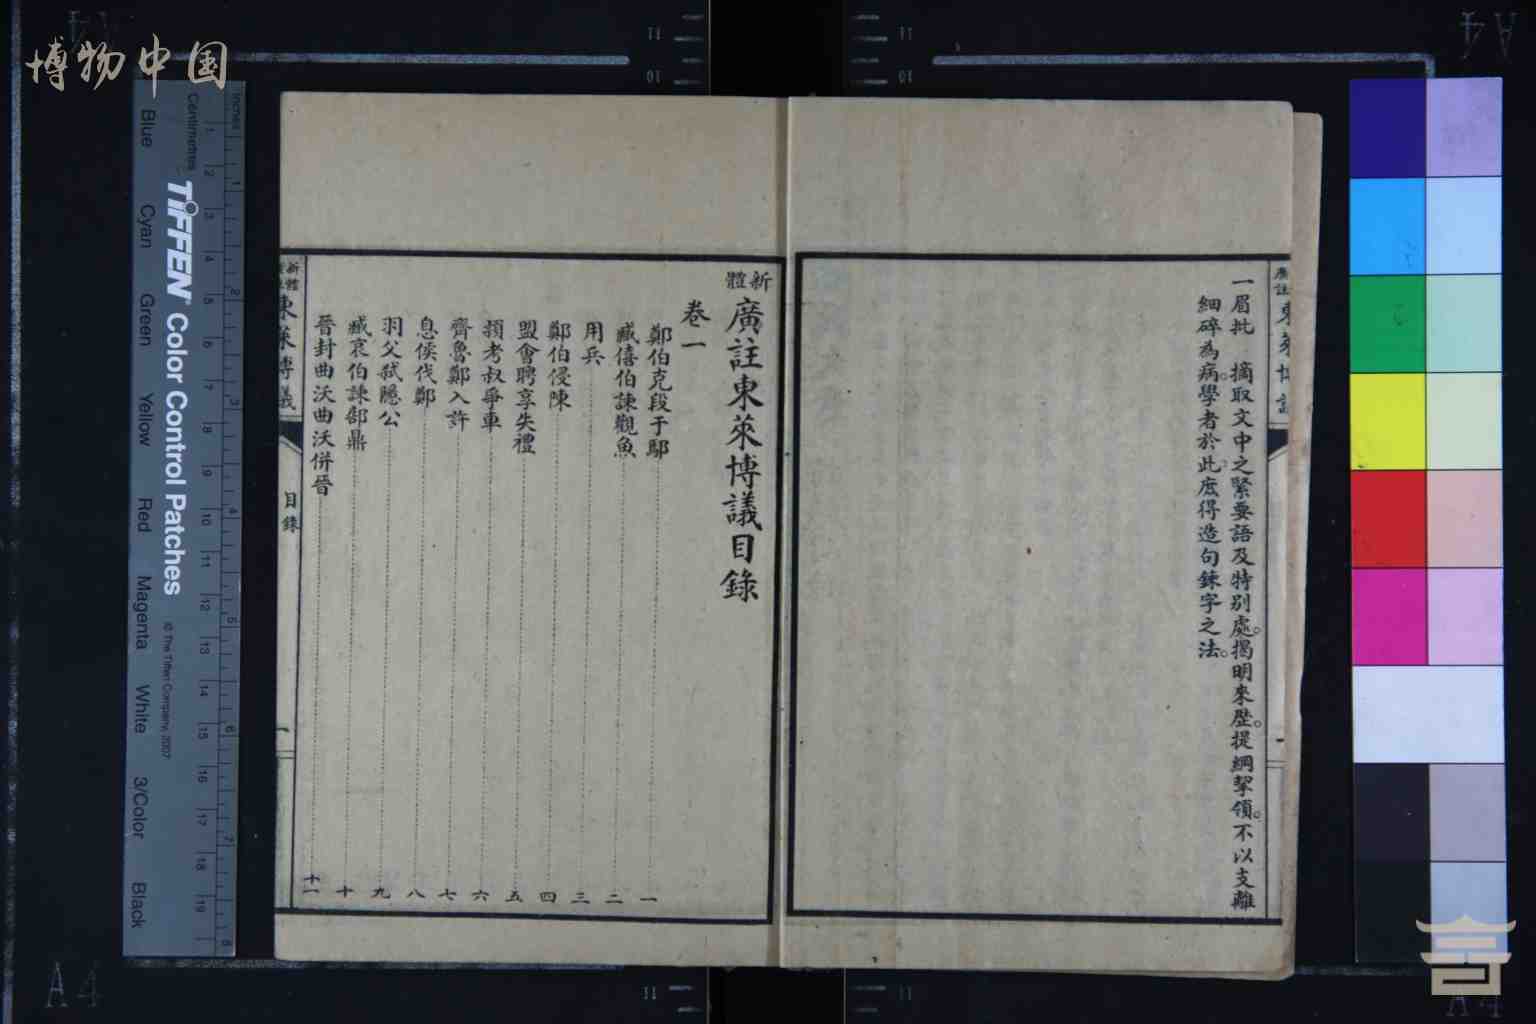 博物中国
一眉批　摘取文中之緊要語及特別處。揭明來歷。提綱挈領。不以支離
細碎為病。學者於此庶得造句鍊字之法。
新體廣註東萊博議目錄
卷一
鄭伯克段于鄢 一
臧僖伯諫觀魚 二
用兵 三
鄭伯侵陳 四
盟會聘享失禮 五
潁考叔爭車 六
齊魯鄭入許 七
息侯伐鄭 八
羽父弒隱公 九
臧哀伯諫郜鼎 十
晉封曲沃曲沃併晉 十一
東萊博議
目錄
一
Inches
Centimetres
1 2 3 4 5 6 7 8 9 10 11 12 13 14 15 16 17 18 19
1 2 3 4 5 6 7 8
TIFFEN Color Control Patches
© The Tiffen Company, 2007
Blue Cyan Green Yellow Red Magenta White 3/Color Black
A4
A4
A4
A4
11
10
11
10
11
11